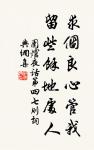 求個良心管我
留些餘地處人
圍爐夜話第四七則詞
典網集